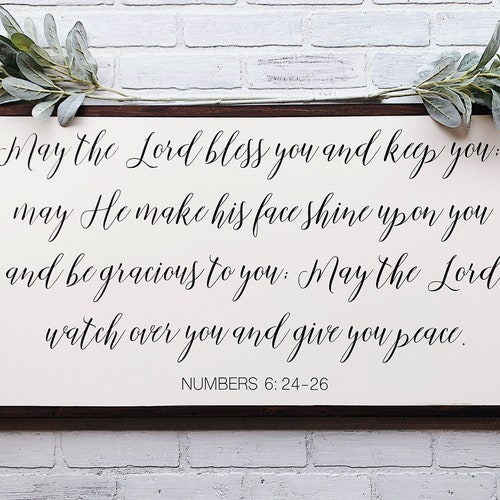 May the Lord bless you and keep you;
may He make his face shine upon you
and be gracious to you; May the Lord
watch over you and give you peace.
NUMBERS 6: 24-26